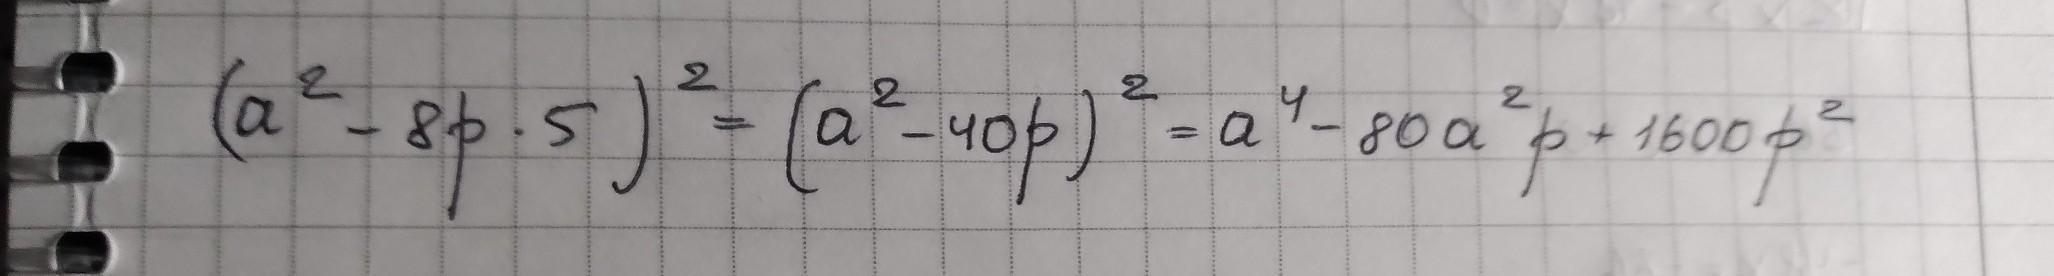 (a² - 8p · 5)² = (a² - 40p)² = a⁴ - 80a²p + 1600p²